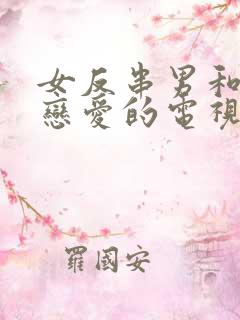 女反串男和
戀愛的電視
羅國安